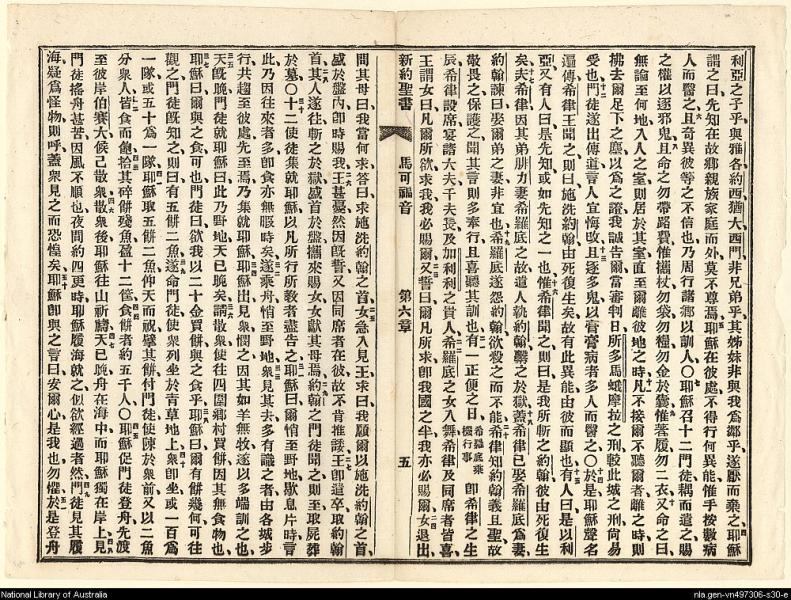 利亞之子乎與雅各約西猶大西門非兄弟乎其姊妹非與我爲鄰乎遂厭而棄之耶穌
謂之曰先知在故鄉親族家庭而外莫不尊焉耶穌在彼處不得行何異能惟手按數病
人而醫之且奇異彼等之不信也乃周行諸鄉以訓人〇耶穌召十二門徒耦而遣之賜
之權以逐邪鬼且命之勿帶路費惟攜杖勿袋勿糧勿金於囊惟著履勿二衣又命之曰
無論至何地入人之室則居於其室直至爾離彼地之時凡不接爾不聽爾者離之時則
拂去爾足下之塵以爲之證我誠告爾當審判日所多馬蛾摩拉之刑較此城之刑尚易
受也門徒遂出傳道言人宜悔改且逐多鬼以膏膏病者多人而醫之〇於是耶穌聲名
遍傳希律王聞之則曰施洗約翰由死復生矣故有此異能由彼而顯也有人曰是以利
亞又有人曰是先知或如先知之一也惟希律聞之則曰是我所斬之約翰彼由死復生
矣夫希律因其弟腓力妻希羅底之故遣人執約翰繫之於獄蓋希律已娶希羅底爲妻
約翰諫曰娶爾弟之妻非宜也希羅底遂怨約翰欲殺之而不能希律知約翰義且聖故
敬畏之保護之聞其言則多奉行且喜聽其訓也有一正便之日希羅底乘機行事卽希律之生
辰希律設席宴諸大夫千夫長及加利利之貴人希羅底之女入舞希律及同席者皆喜
王謂女曰凡爾所欲求我我必賜爾又誓曰爾凡所求卽我國之半我亦必賜爾女退出
新約聖書 馬可福音 第六章 五
問其母曰我當何求答曰求施洗約翰之首女急入見王求曰我願爾以施洗約翰之首
盛於盤內卽時賜我王甚憂然因旣誓又因同席者在彼故不肯推諉王卽遣卒取約翰
首其人遂往斬之於獄盛首於盤攜來賜女女獻其母焉約翰之門徒聞之則至取屍葬
於墓〇十二使徒集就耶穌以凡所行所教者盡告之耶穌曰爾悄至野地歇息片時言
此乃因往來者多卽食亦無暇時矣遂乘舟悄至野地衆見其去多有識之者由各城步
行共趨至彼處先至焉乃集就耶穌耶穌出見衆憫之因其如羊無牧遂以多端訓之也
天旣晚門徒就耶穌曰此乃野地天已晚矣請散衆使往四圍鄉村買餅因其無食物也
耶穌曰爾與之食可也門徒曰欲我以二十金買餅與之食乎耶穌曰爾有餅幾何可往
觀之門徒旣知之則曰有五餅二魚遂命門徒使衆列坐於青草地上衆卽坐或一百爲
一隊或五十爲一隊耶穌取五餅二魚仰天而祝擘其餅付門徒使陳於衆前又以二魚
分衆人皆食而飽拾其碎餅殘魚盈十二筐食餅者約五千人〇耶穌促門徒登舟先渡
至彼岸伯賽大候己散衆散衆後耶穌往山祈禱天已晚舟在海中而耶穌獨在岸上見
門徒搖舟甚苦因風不順也夜間約四更時耶穌履海就之似欲經過者然門徒見其履
海疑爲怪物則呼蓋衆見之而恐惶矣耶穌卽與之言曰安爾心是我也勿懼於是登舟
National Library of Australia
nla.gen-vn497306-s30-e